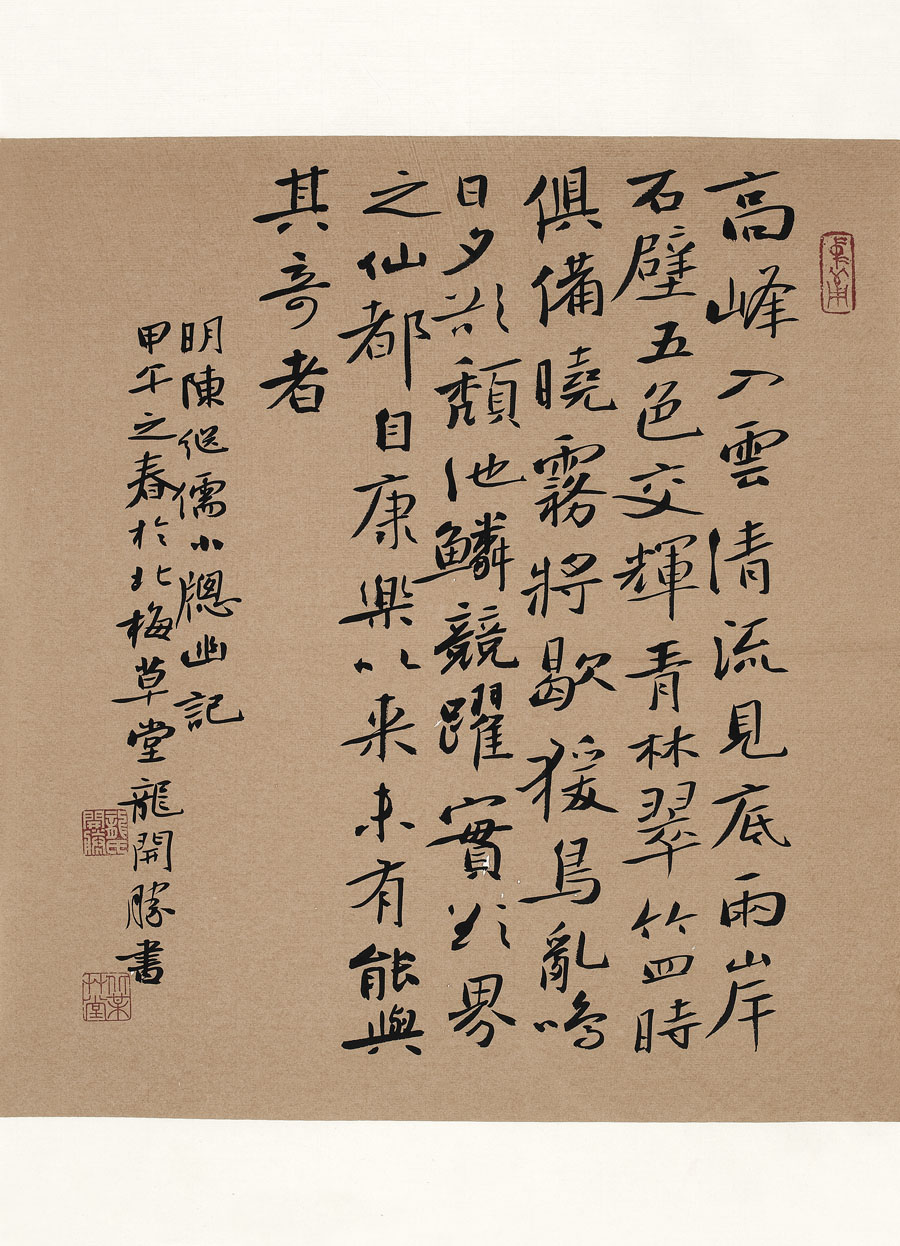 高峰入雲清流見底兩岸
石壁五色交輝青林翠竹四時
俱備曉霧將歇猨鳥亂鳴
日夕欲頹池鱗競躍實欲界
之仙都自康樂以来未有能與
其奇者
明陳継儒小牎幽記
甲午之春於北梅草堂龍開勝書